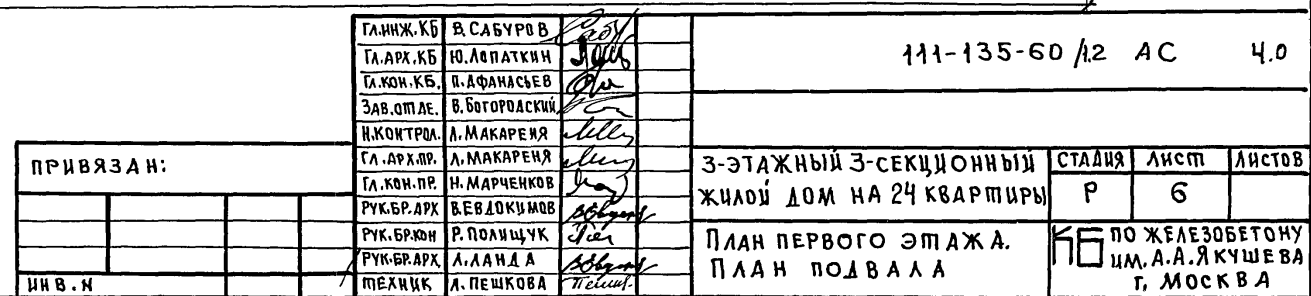 ГЛ.ИНЖ.КБ В.САБУРОВ
ГЛ.АРХ.КБ Ю.ЛОПАТКИН
ГЛ.КОН.КБ. П.АФАНАСЬЕВ
ЗАВ.ОТДЕ. В.БОГОРОДСКИЙ
Н.КОНТРОЛ. Л.МАКАРЕНЯ
ГЛ.АРХ.ПР. Л.МАКАРЕНЯ
ГЛ.КОН.ПР. Н.МАРЧЕНКОВ
РУК.БР.АРХ В.ЕВДОКИМОВ
РУК.БР.КОН Р.ПОЛИЩУК
РУК.БР.АРХ. Л.ЛАНДА
ТЕХНИК Л.ПЕШКОВА
ПРИВЯЗАН:
ИНВ.N
111-135-60/1.2 АС Ч.0
3-ЭТАЖНЫЙ 3-СЕКЦИОННЫЙ
ЖИЛОЙ ДОМ НА 24 КВАРТИРЫ
СТАДИЯ ЛИСТ ЛИСТОВ
Р 6
ПЛАН ПЕРВОГО ЭТАЖА.
ПЛАН ПОДВАЛА
КБ ПО ЖЕЛЕЗОБЕТОНУ
ИМ. А.А.ЯКУШЕВА
Г. МОСКВА